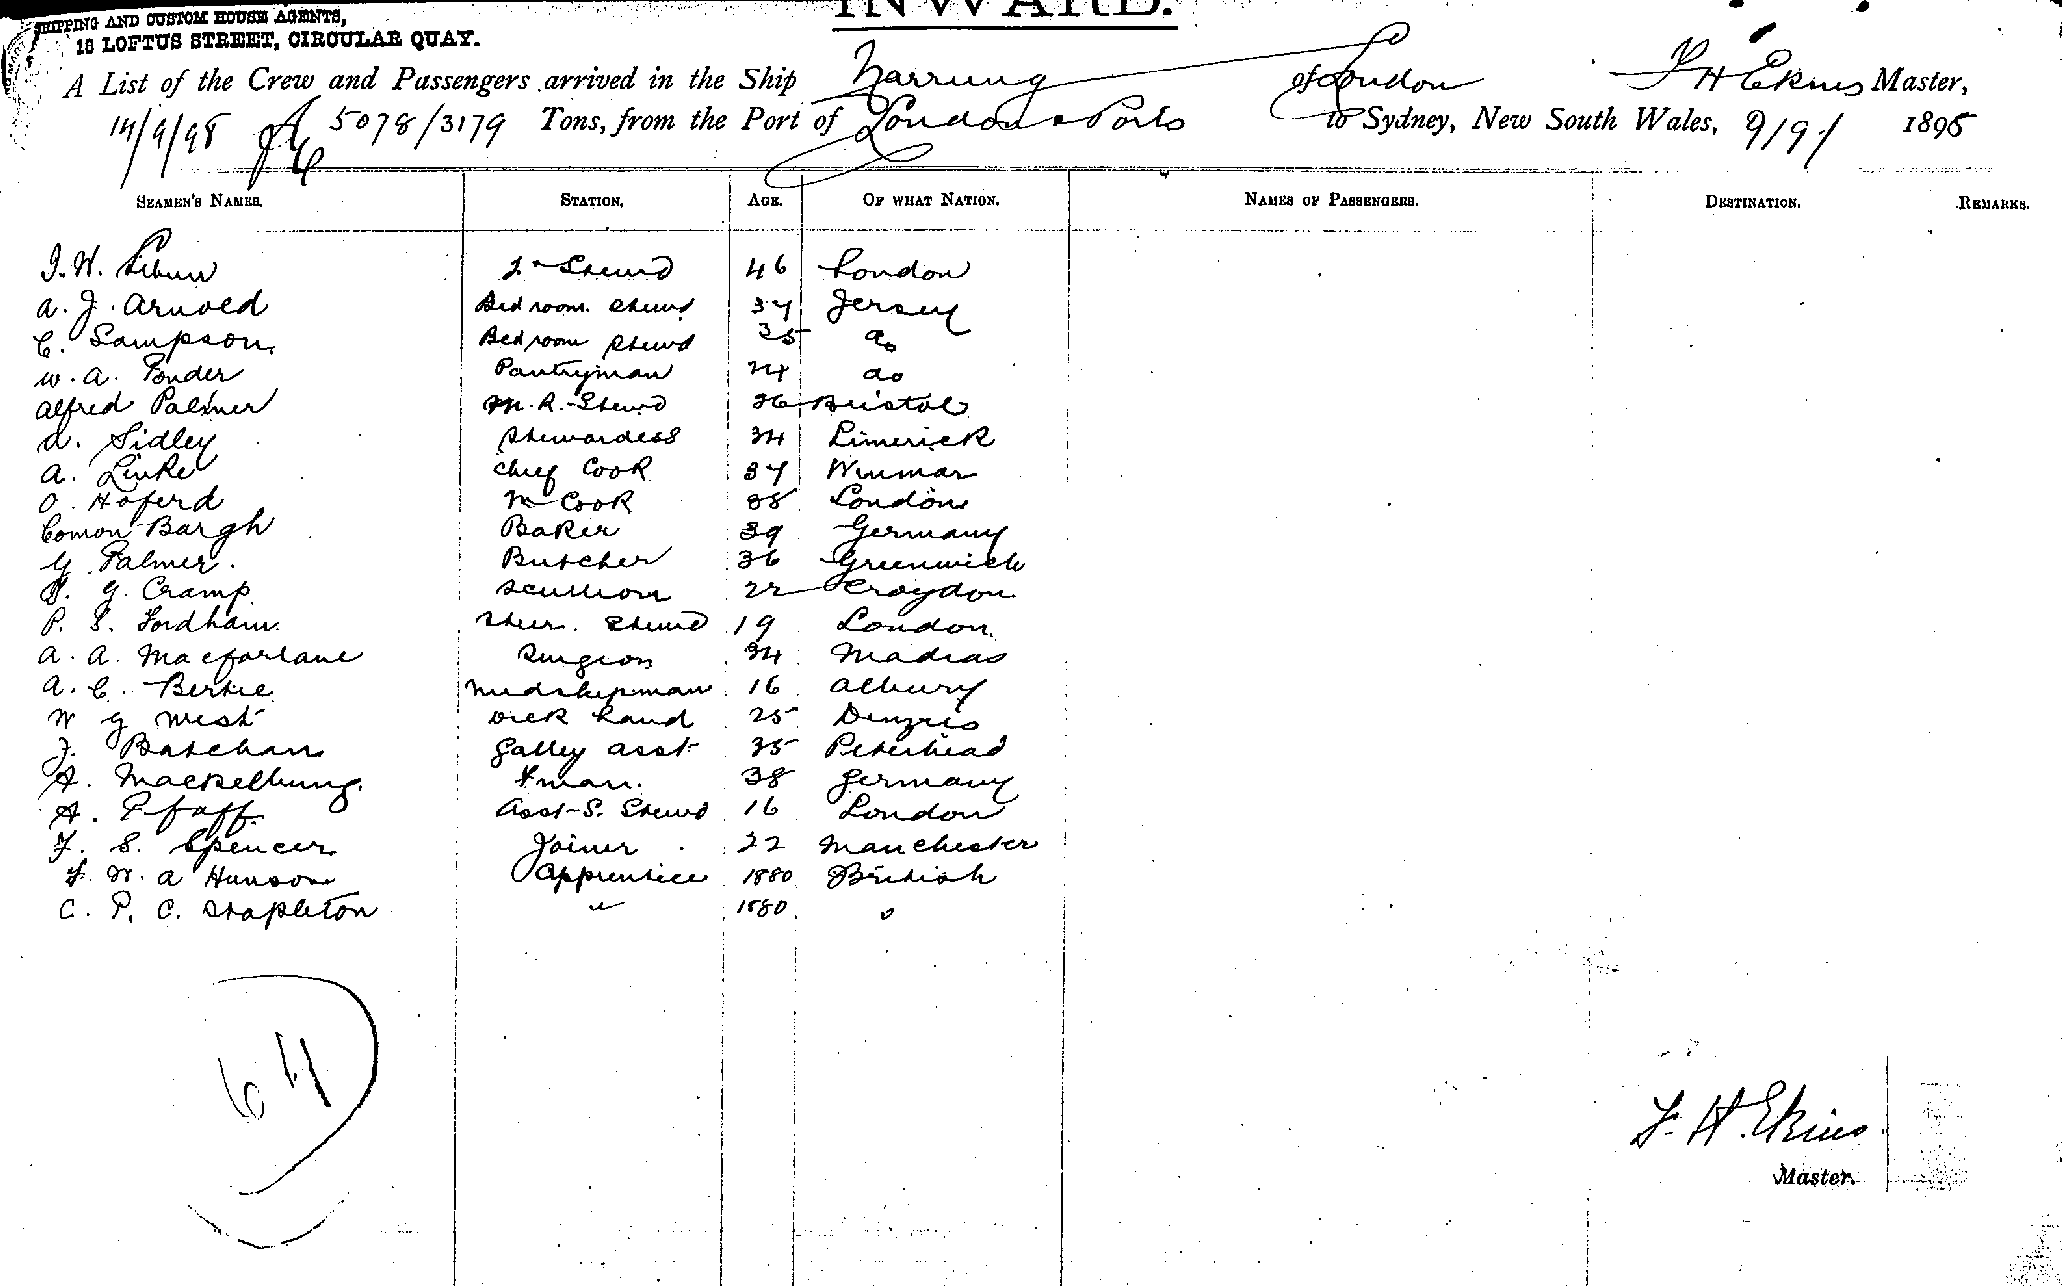 INWARD.
SHIPPING AND CUSTOM HOUSE AGENTS,
18 LOFTUS STREET, CIRCULAR QUAY.
A List of the Crew and Passengers arrived in the Ship Narrung of London F H Ekins Master,
14/9/98 5078/3179 Tons, from the Port of London & Ports to Sydney, New South Wales, 9/9/ 1898
SEAMEN'S NAMES. STATION. AGE. OF WHAT NATION. NAMES OF PASSENGERS. DESTINATION. REMARKS.
J. W. 2 Stewd 46 London
A. J. Arnold Bedroom Stewd 37 Jersey
C. Sampson Bedroom Stewd 35 do
W. A. Ponder Pantryman 24 do
Alfred Palmer M. R. Stewd 26 Bristol
A. Sidley Stewardess 34 Limerick
A. Linke Chief Cook 37
O. Hoferd Cook 38 London
Comon Bargh Baker 39 Germany
G. Palmer Butcher 36 Greenwich
G. Cramp Scullion 22 Croydon
P. S. Fordham Stewd 19 London
A. A. Macfarlane Surgeon 34 Madras
A. C. Bertie Midshipman 16 Albury
W G West Deck hand 25
J. Batchan Galley asst 35 Peterhead
A. man. 38 Germany
A. Pfaff Asst S. Stewd 16 London
F. S. Spencer Joiner 22 Manchester
F. W. A Hunson Apprentice 1880 British
C. P. C. Stapleton " 1880 "
64
F. H. Ekins
Master.